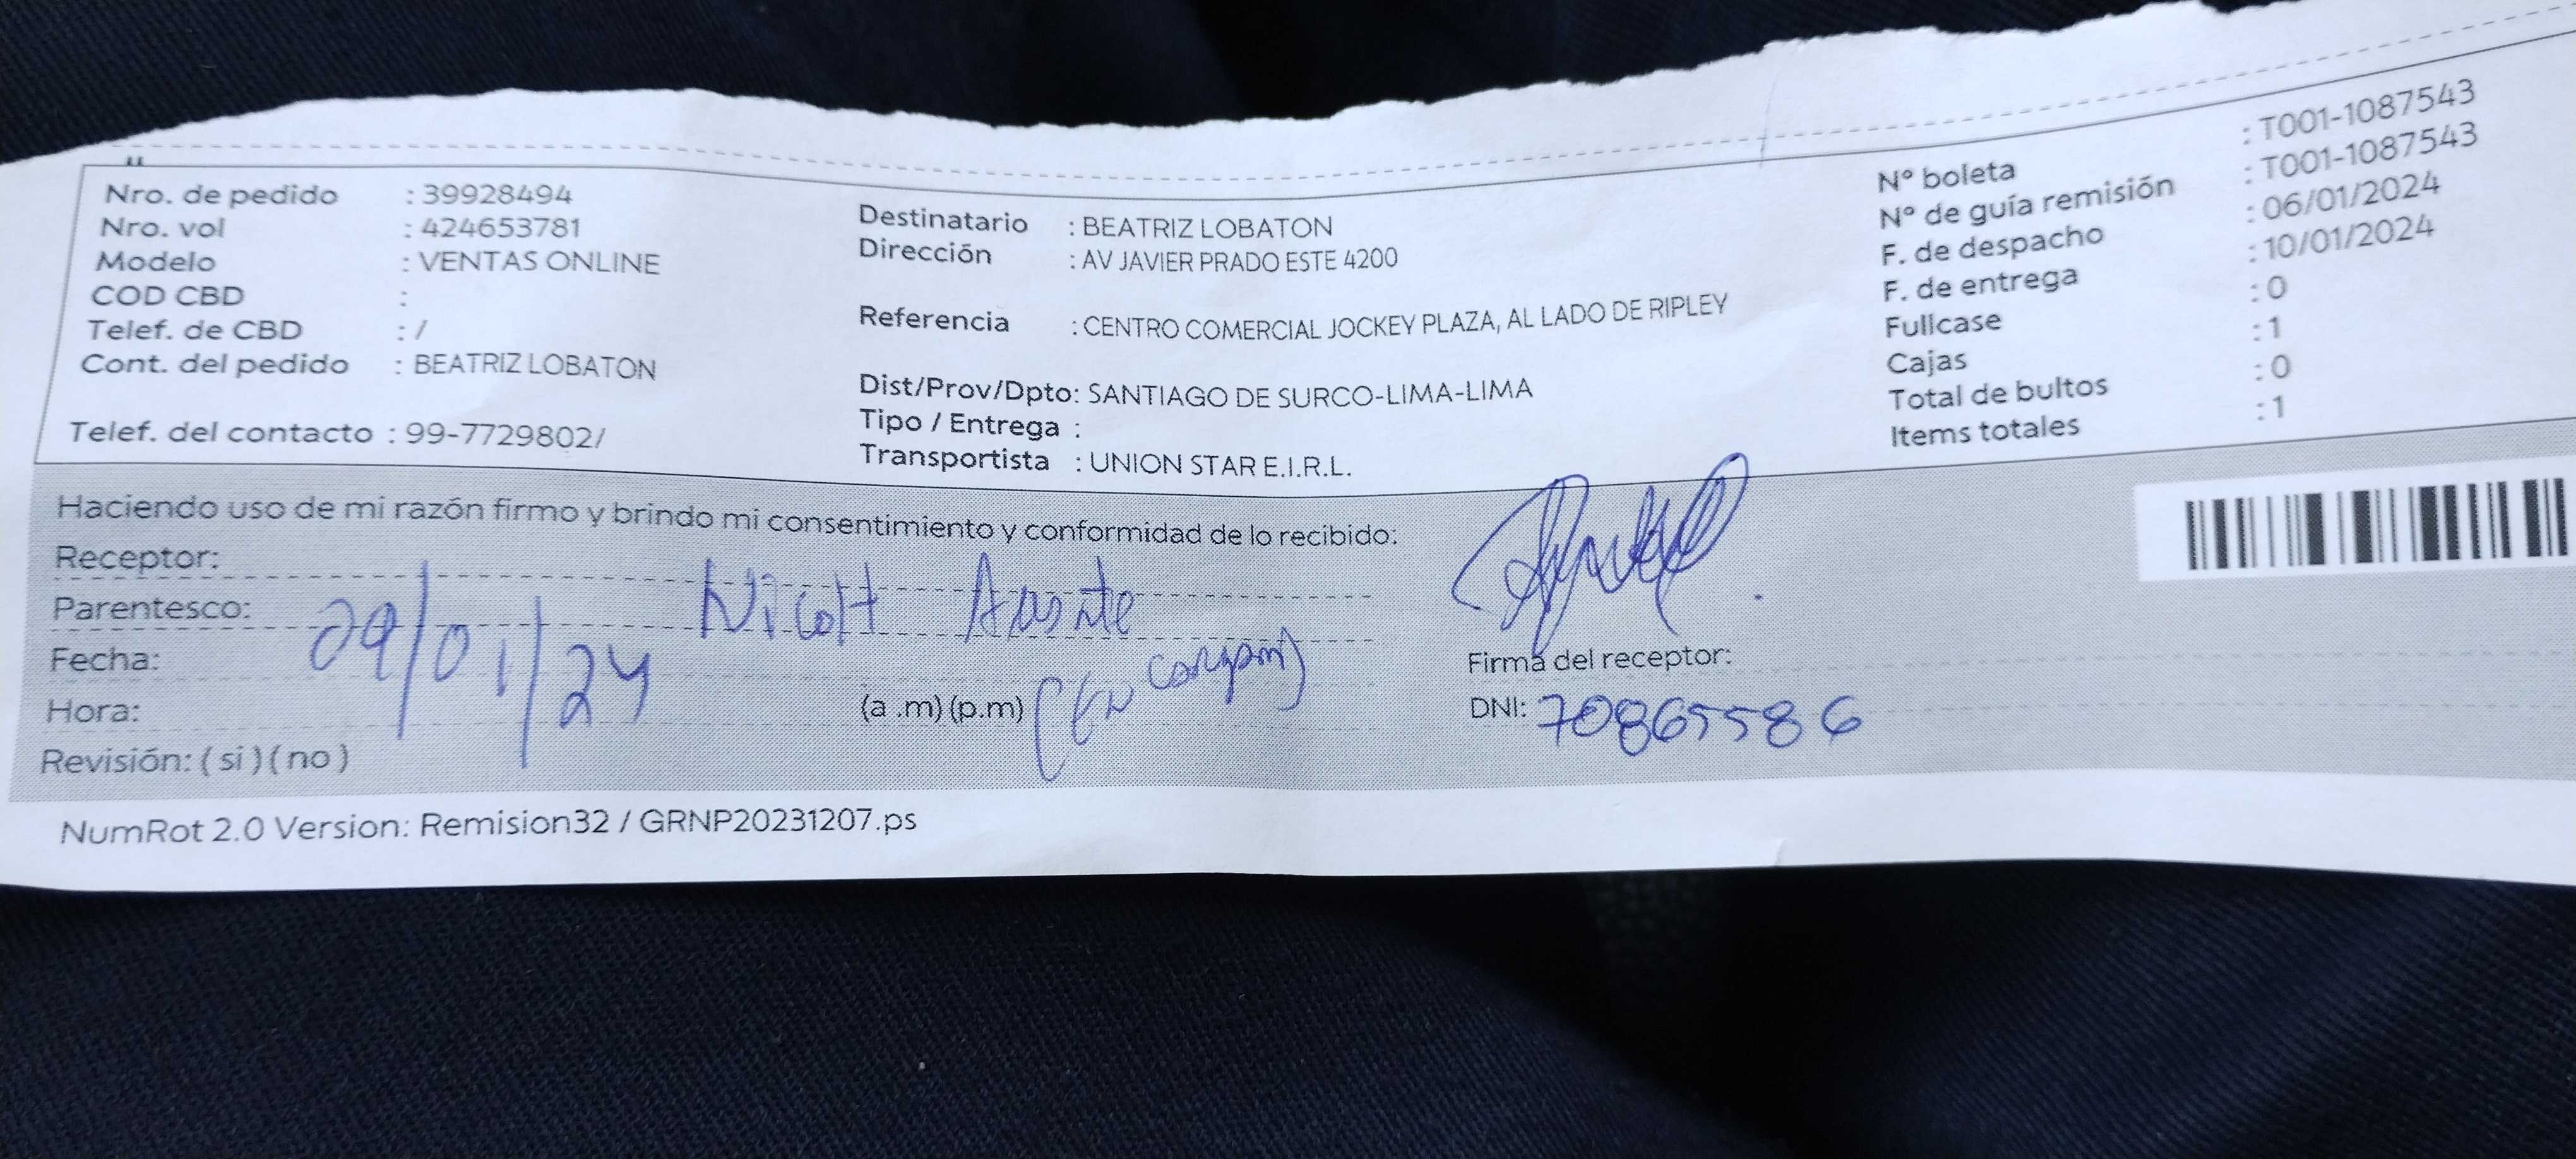 Nro. de pedido : 39928494
Nro. vol : 424653781
Modelo : VENTAS ONLINE
COD CBD :
Telef. de CBD : /
Cont. del pedido : BEATRIZ LOBATON
Telef. del contacto : 99-7729802/
Destinatario : BEATRIZ LOBATON
Dirección : AV JAVIER PRADO ESTE 4200
Referencia : CENTRO COMERCIAL JOCKEY PLAZA, AL LADO DE RIPLEY
Dist/Prov/Dpto: SANTIAGO DE SURCO-LIMA-LIMA
Tipo / Entrega :
Transportista : UNION STAR E.I.R.L.
N° boleta : T001-1087543
N° de guía remisión : T001-1087543
F. de despacho : 06/01/2024
F. de entrega : 10/01/2024
Fullcase : 0
Cajas : 1
Total de bultos : 0
Items totales : 1
Haciendo uso de mi razón firmo y brindo mi consentimiento y conformidad de lo recibido:
Receptor:
Parentesco:
Fecha: 09/01/24
Hora: (a .m) (p.m)
Revisión: ( si ) ( no )
Firma del receptor:
DNI: 70865586
NumRot 2.0 Version: Remision32 / GRNP20231207.ps